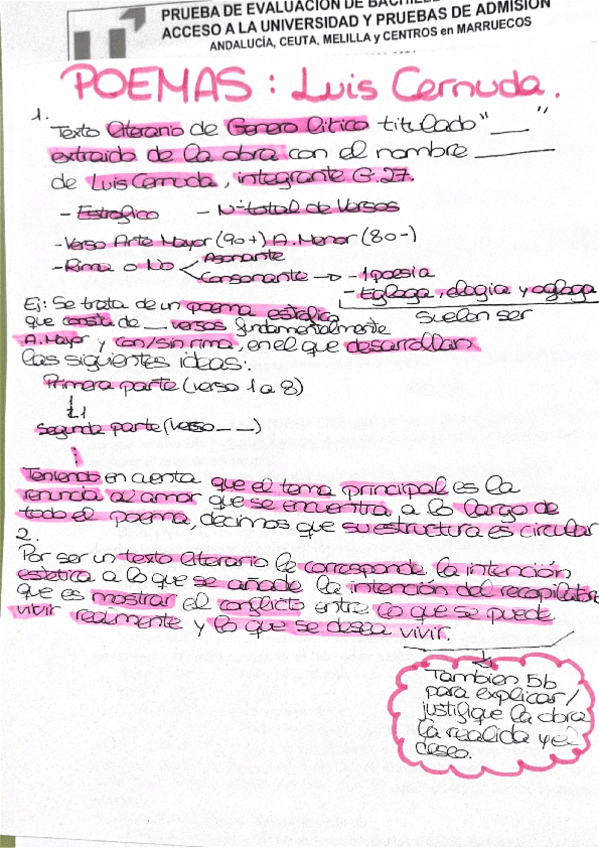 PRUEBA DE EVALUACIÓN DE BACHILLE
ACCESO A LA UNIVERSIDAD Y PRUEBAS DE ADMISIÓN
ANDALUCÍA, CEUTA, MELILLA y CENTROS en MARRUECOS
POEMAS : Luis Cernuda.
1.
Texto literario de Genero lírico titulado "___"
extraido de la obra con el nombre ______
de Luis Cernuda, integrante G.27.
- Estrofico - Nº total de Versos
- Verso Arte Mayor (9o+) A. Menor (8o-)
- Rima o No < Asonante
Consonante → - 1 poesia
- Egloga, elogia y egloga
suelen ser
Ej: Se trata de un poema estrofico
que consta de __ versos fundamentalmente
A. Mayor y con/sin rima, en el que desarrollan
las siguientes ideas:.
Primera parte (verso 1 a 8)
Segunda parte (verso _ _)
Teniendo en cuenta que el tema principal es la
renuncia al amor que se encuentra a lo largo de
todo el poema, decimos que su estructura es circular
2.
Por ser un texto literario le corresponde la intención
estetica a lo que se añade la intención del recopilatorio
que es mostrar el conflicto entre lo que se puede
vivir realmente y lo que se desea vivir.
Tambien 5b
para explicar/
justifique la obra
la realida y el
deseo.